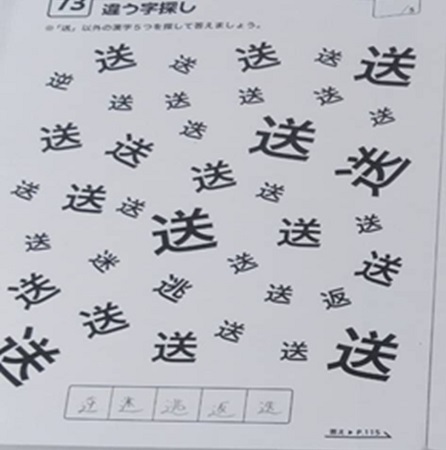 73 違う字探し
※「送」以外の漢字5つを探して答えましょう。
/5
送 送 送 送 送
逆 送 送 送 送 送
送 送 送 送
送 送
送 送 送 送 送 送
送 迷 送 送
送 逃 送 返
送 送 送 送 送 送
逆 迷 逃 返
答え▶P.115